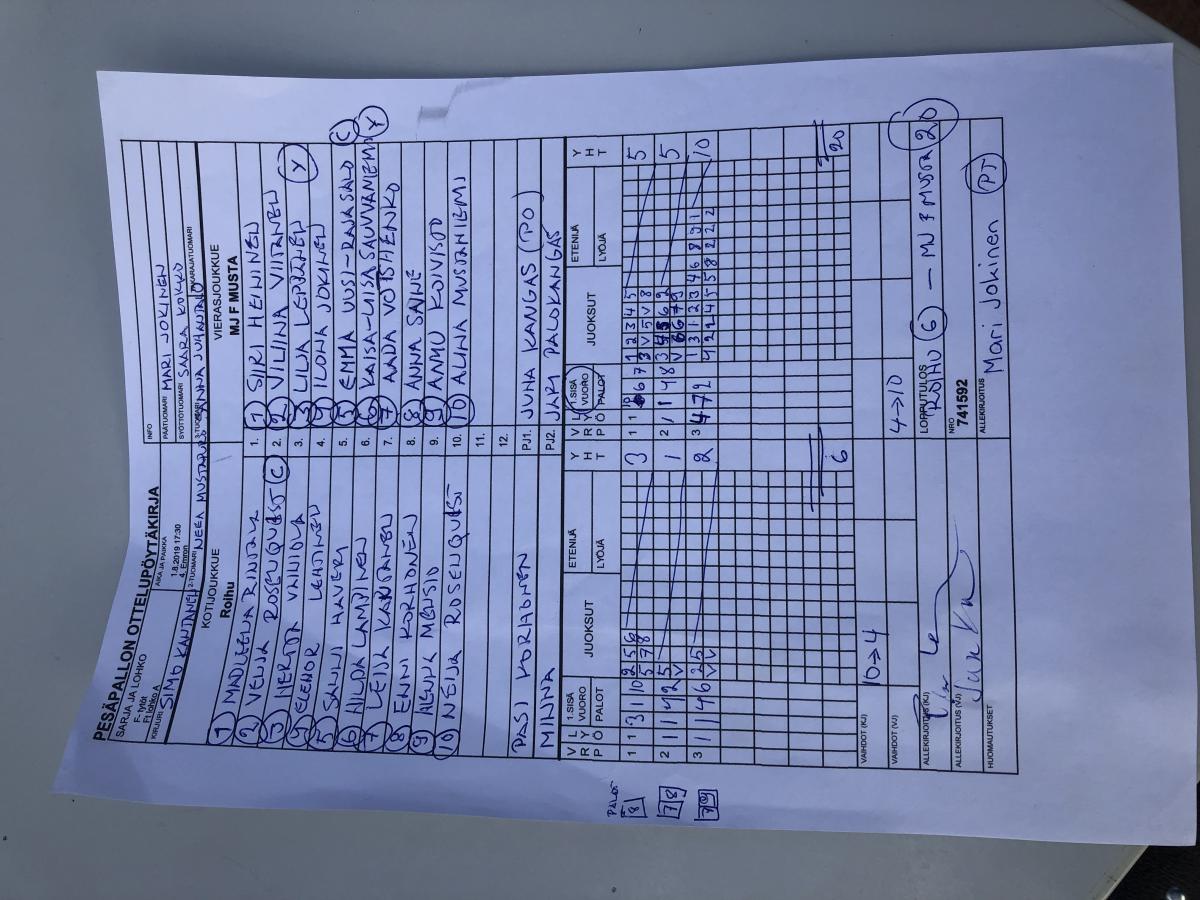 PESÄPALLON OTTELUPÖYTÄKIRJA
SARJA JA LOHKO
F- tytöt
Ft lohko A
AIKA JA PAIKKA
1.8.2019 17:30
4. Emron
INFO
PÄÄTUOMARI MARI JOKINEN
SYÖTTÖTUOMARI SAARA KOKKO
KIRJURI SIMO KANTANEN
2-TUOMARI NEEA
3-TUOMARI ANNA JUHANTALO
TAKARAJATUOMARI
KOTIJOUKKUE
Roihu
VIERASJOUKKUE
MJ F MUSTA
1 MADLEENA RINTALA 1. 1 SIIRI HEININEN
2 VENJA ROSENQUIST C 2. 2 VILIINA VIITANEN
3 HERTTA VAINIOLA 3. 3 LILJA LEPPÄNEN Y
4 ELENOR LEHTINEN 4. 4 ILONA JOKINEN
5 SALLI HAVERI 5. 5 EMMA UUSI-RAJASALO C
6 HILDA LAMPINEN 6. 6 KAISA-LIISA SAUVANIEMI Y
7 LEIJA KANTANEN 7. 7 AADA VOTSHENKO
8 ENNI KORHONEN 8. 8 ANNA SAINE
9 9. 9 ANMU KOIVISTO
10 NEIJA ROSENQUIST 10. 10 ALINA MUSTANIEMI
11.
12.
PASI KORHONEN PJ1. JUHA KANGAS (PO)
MINNA PJ2. JARI PALOKANGAS
V R P L Y Ö 1.SISÄ VUORO PALOT JUOKSUT ETENIJÄ LYÖJÄ Y H T V R P L Y Ö 1.SISÄ VUORO PALOT JUOKSUT ETENIJÄ LYÖJÄ Y H T
PALOT
8
1 1 3 1 10 2 5 6 3 1 1 6 7 1 2 3 4 5 5
5 7 8 3 V 5 V 8
7 8
2 1 1 4 2 5 1 2 1 1 4 8 5
V
7 9
3 1 1 4 6 2 5 2 3 4 7 2 1 3 1 2 3 4 6 8 9 1 10
V V 4 2 2 4 5 5 8 2 2 2
6 20
VAIHDOT (KJ) 10→4
VAIHDOT (VJ) 4→10
ALLEKIRJOITUS (KJ)
LOPPUTULOS
ROIHU 6 – MJ F MUSTA 20
ALLEKIRJOITUS (VJ)
NRO
741592
HUOMAUTUKSET
ALLEKIRJOITUS
Mari Jokinen PT